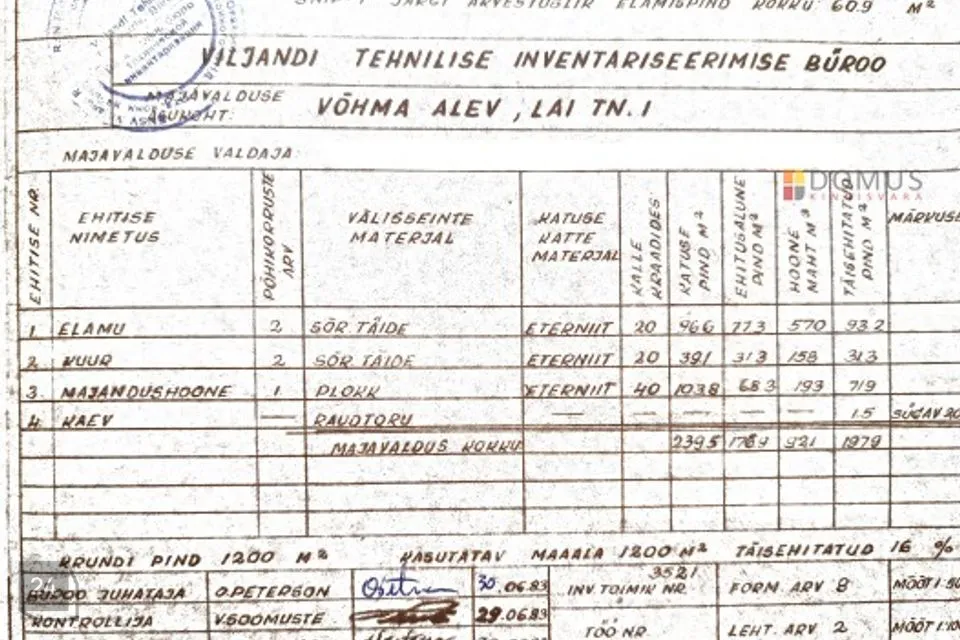 JÄRGI ARVESTUSLIK ELAMISPIND KOKKU 60.9 M²
VILJANDI TEHNILISE INVENTARISEERIMISE BÜROO
MAJAVALDUSE
ASUKOHT: VÕHMA ALEV, LAI TN. 1
MAJAVALDUSE VALDAJA:
DOMUS
KINNISVARA
EHITISE NR. EHITISE NIMETUS PÕHIKORRUSTE ARV VÄLISSEINTE MATERJAL KATUSE KATTE MATERJAL KALLE KRAADIDES KATUSE PIND M² EHITUSALUNE PIND M² HOONE MAHT M³ TÄISEHITATUD PIND M² MÄRKUSE
1. ELAMU 2 SÕR. TÄIDE ETERNIIT 20 96.6 77.3 570 93.2
2. KUUR 2 SÕR. TÄIDE ETERNIIT 20 39.1 31.3 158 31.3
3. MAJANDUSHOONE 1 PLOKK ETERNIIT 40 103.8 68.3 193 71.9
4. KAEV — RAUDTORU — — — — — 1.5 SÜGAV 20
MAJAVALDUS KOKKU 239.5 176.9 921 197.9
KRUNDI PIND 1200 M² KASUTATAV MAAALA 1200 M² TÄISEHITATUD 16 %
BÜROO JUHATAJA O.PETERSON 30.06.83 INV. TOIMIK NR. 3521 FORM. ARV 8 MÕÕT 1:50
KONTROLLIJA V.SOOMUSTE 29.06.83 TÖÖ NR. LEHT. ARV 2 MÕÕT 1:10
24